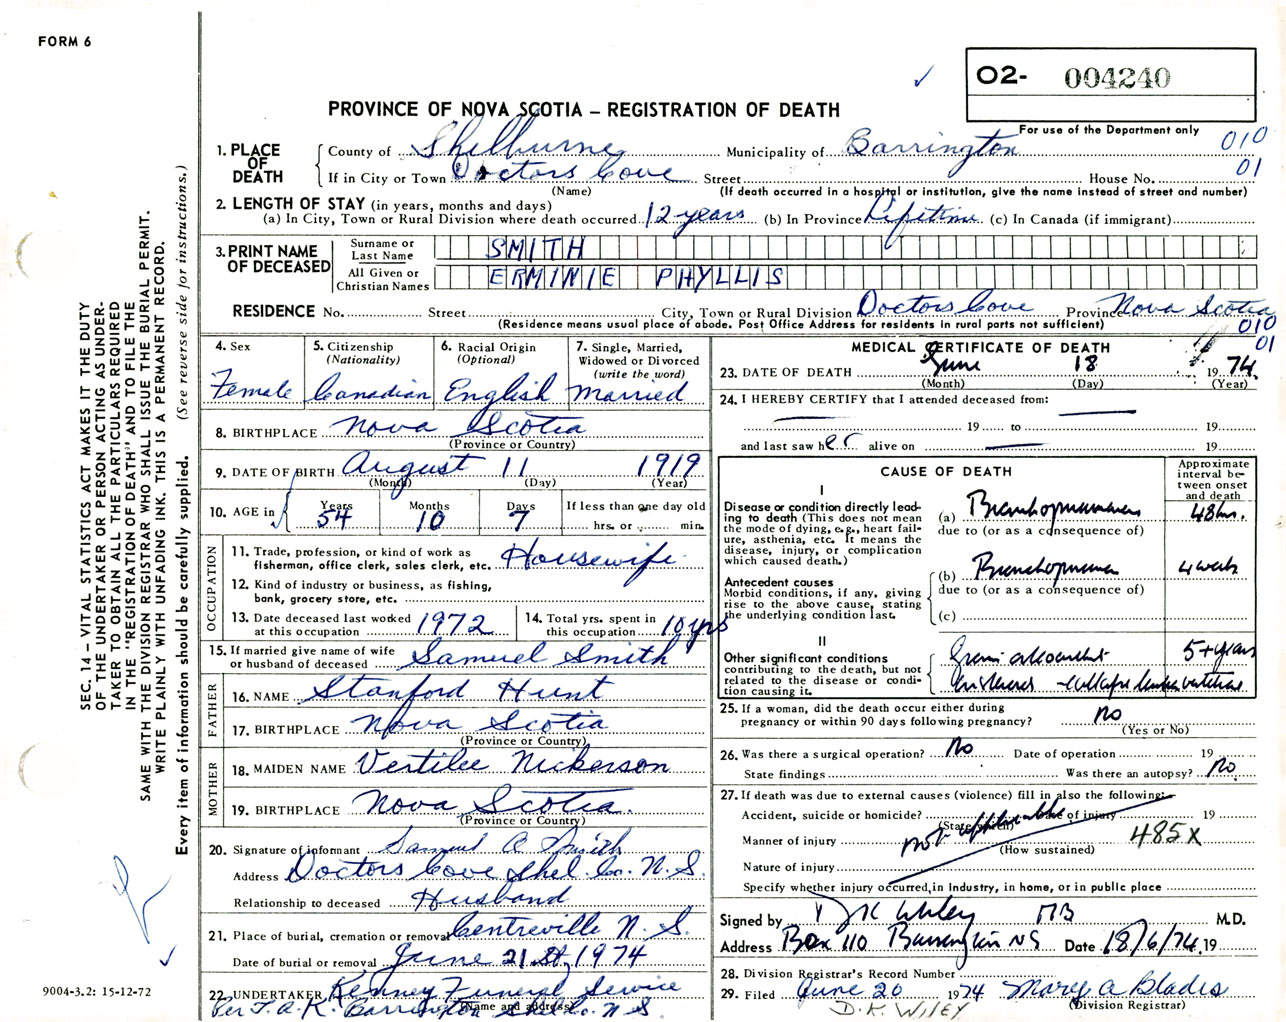 FORM 6
O2- 004240
PROVINCE OF NOVA SCOTIA – REGISTRATION OF DEATH
For use of the Department only
010
01
1. PLACE OF DEATH
County of Shelburne Municipality of Barrington
If in City or Town Doctors Cove Street House No.
(Name) (If death occurred in a hospital or institution, give the name instead of street and number)
2. LENGTH OF STAY (in years, months and days)
(a) In City, Town or Rural Division where death occurred 12 years (b) In Province Lifetime (c) In Canada (if immigrant)
3. PRINT NAME OF DECEASED
Surname or Last Name SMITH
All Given or Christian Names ERMINIE PHYLLIS
RESIDENCE No. Street City, Town or Rural Division Doctors Cove Province Nova Scotia
(Residence means usual place of abode. Post Office Address for residents in rural parts not sufficient)
010
01
4. Sex
Female
5. Citizenship
(Nationality)
Canadian
6. Racial Origin
(Optional)
English
7. Single, Married,
Widowed or Divorced
(write the word)
Married
8. BIRTHPLACE Nova Scotia
(Province or Country)
9. DATE OF BIRTH August 11 1919
(Month) (Day) (Year)
10. AGE in
Years Months Days If less than one day old
54 10 7 hrs. or min.
OCCUPATION
11. Trade, profession, or kind of work as
fisherman, office clerk, sales clerk, etc. Housewife
12. Kind of industry or business, as fishing,
bank, grocery store, etc.
13. Date deceased last worked
at this occupation 1972
14. Total yrs. spent in
this occupation 10 yrs
15. If married give name of wife
or husband of deceased Samuel Smith
FATHER
16. NAME Stanford Hunt
17. BIRTHPLACE Nova Scotia
(Province or Country)
MOTHER
18. MAIDEN NAME Vertilee Nickerson
19. BIRTHPLACE Nova Scotia.
(Province or Country)
20. Signature of informant Samuel A Smith
Address Doctors Cove Shel. Co. N.S.
Relationship to deceased Husband
21. Place of burial, cremation or removal Centreville N.S.
Date of burial or removal June 21st, 1974
22. UNDERTAKER Kenney Funeral Service
(Name and address)
Per T.A.K. Barrington Shel. Co. N S.
MEDICAL CERTIFICATE OF DEATH
23. DATE OF DEATH June 18 1974
(Month) (Day) (Year)
24. I HEREBY CERTIFY that I attended deceased from:
19 to 19
and last saw her alive on 19
CAUSE OF DEATH
Approximate
interval be-
tween onset
and death
I
Disease or condition directly lead-
ing to death (This does not mean
the mode of dying, e.g., heart fail-
ure, asthenia, etc. It means the
disease, injury, or complication
which caused death.)
(a) Bronchopneumonia 48 hrs.
due to (or as a consequence of)
Antecedent causes
Morbid conditions, if any, giving
rise to the above cause, stating
the underlying condition last.
(b) 4 weeks
due to (or as a consequence of)
(c)
II
Other significant conditions
contributing to the death, but not
related to the disease or condi-
tion causing it.
5+ years
25. If a woman, did the death occur either during
pregnancy or within 90 days following pregnancy? no
(Yes or No)
26. Was there a surgical operation? No Date of operation 19
State findings Was there an autopsy? No.
27. If death was due to external causes (violence) fill in also the following:
Accident, suicide or homicide? Date of injury 19
(State which)
not applicable
Manner of injury 485X
(How sustained)
Nature of injury
Specify whether injury occurred, in Industry, in home, or in public place
Signed by D K Wiley MB M.D.
Address Box 110 Barrington NS Date 18/6/74 19
28. Division Registrar's Record Number
29. Filed June 20 1974 Mary A Blades
(Division Registrar)
D.K. WILEY
SEC. 14 – VITAL STATISTICS ACT MAKES IT THE DUTY
OF THE UNDERTAKER OR PERSON ACTING AS UNDER-
TAKER TO OBTAIN ALL THE PARTICULARS REQUIRED
IN THE "REGISTRATION OF DEATH" AND TO FILE THE
SAME WITH THE DIVISION REGISTRAR WHO SHALL ISSUE THE BURIAL PERMIT.
WRITE PLAINLY WITH UNFADING INK. THIS IS A PERMANENT RECORD.
Every item of information should be carefully supplied. (See reverse side for instructions.)
9004-3.2: 15-12-72